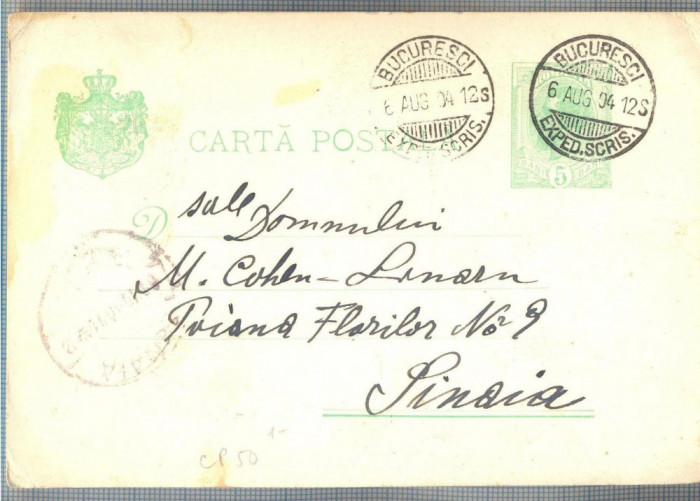 BUCURESCI
6 AUG 04 12S
EXPED. SCRIS.
BUCURESCI
6 AUG 04 12S
EXPED. SCRIS.
CARTĂ POST
5
D sale Domnului
M. Cohen-Linaru
Poiana Florilor No 9
Sinaia
CP 50